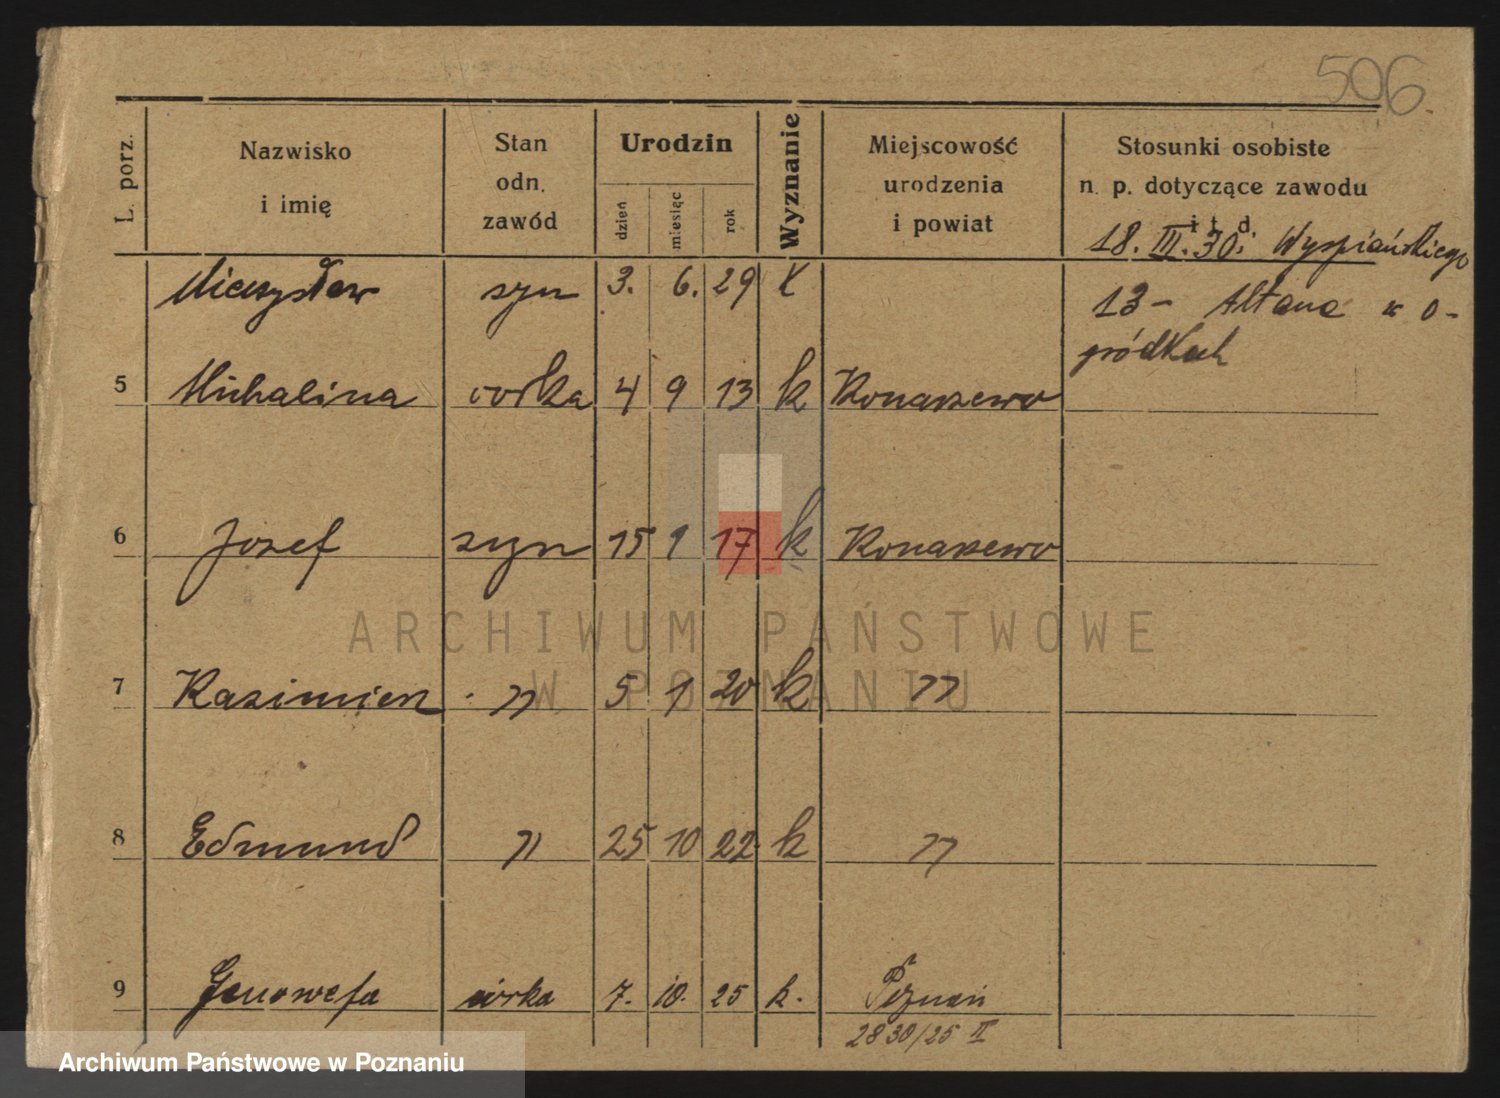 506
L. porz.
Nazwisko
i imię
Stan
odn.
zawód
Urodzin
dzień
miesiąc
rok
Wyznanie
Miejscowość
urodzenia
i powiat
Stosunki osobiste
n. p. dotyczące zawodu
i t. d.
18. III. 30. Wyspiańskiego
Mieczysław syn 3. 6. 29 k
13 - Altana w o-
gródkach
5 Michalina corka 4 9 13 k Konarzewo
6 Jozef syn 15 1 17 k Konarzewo
ARCHIWUM PAŃSTWOWE
W POZNANIU
7 Kazimierz " 5 1 20 k "
8 Edmund " 25 10 22 k "
9 Genowefa córka 7. 10. 25 k. Poznań
2830/25 II
Archiwum Państwowe w Poznaniu